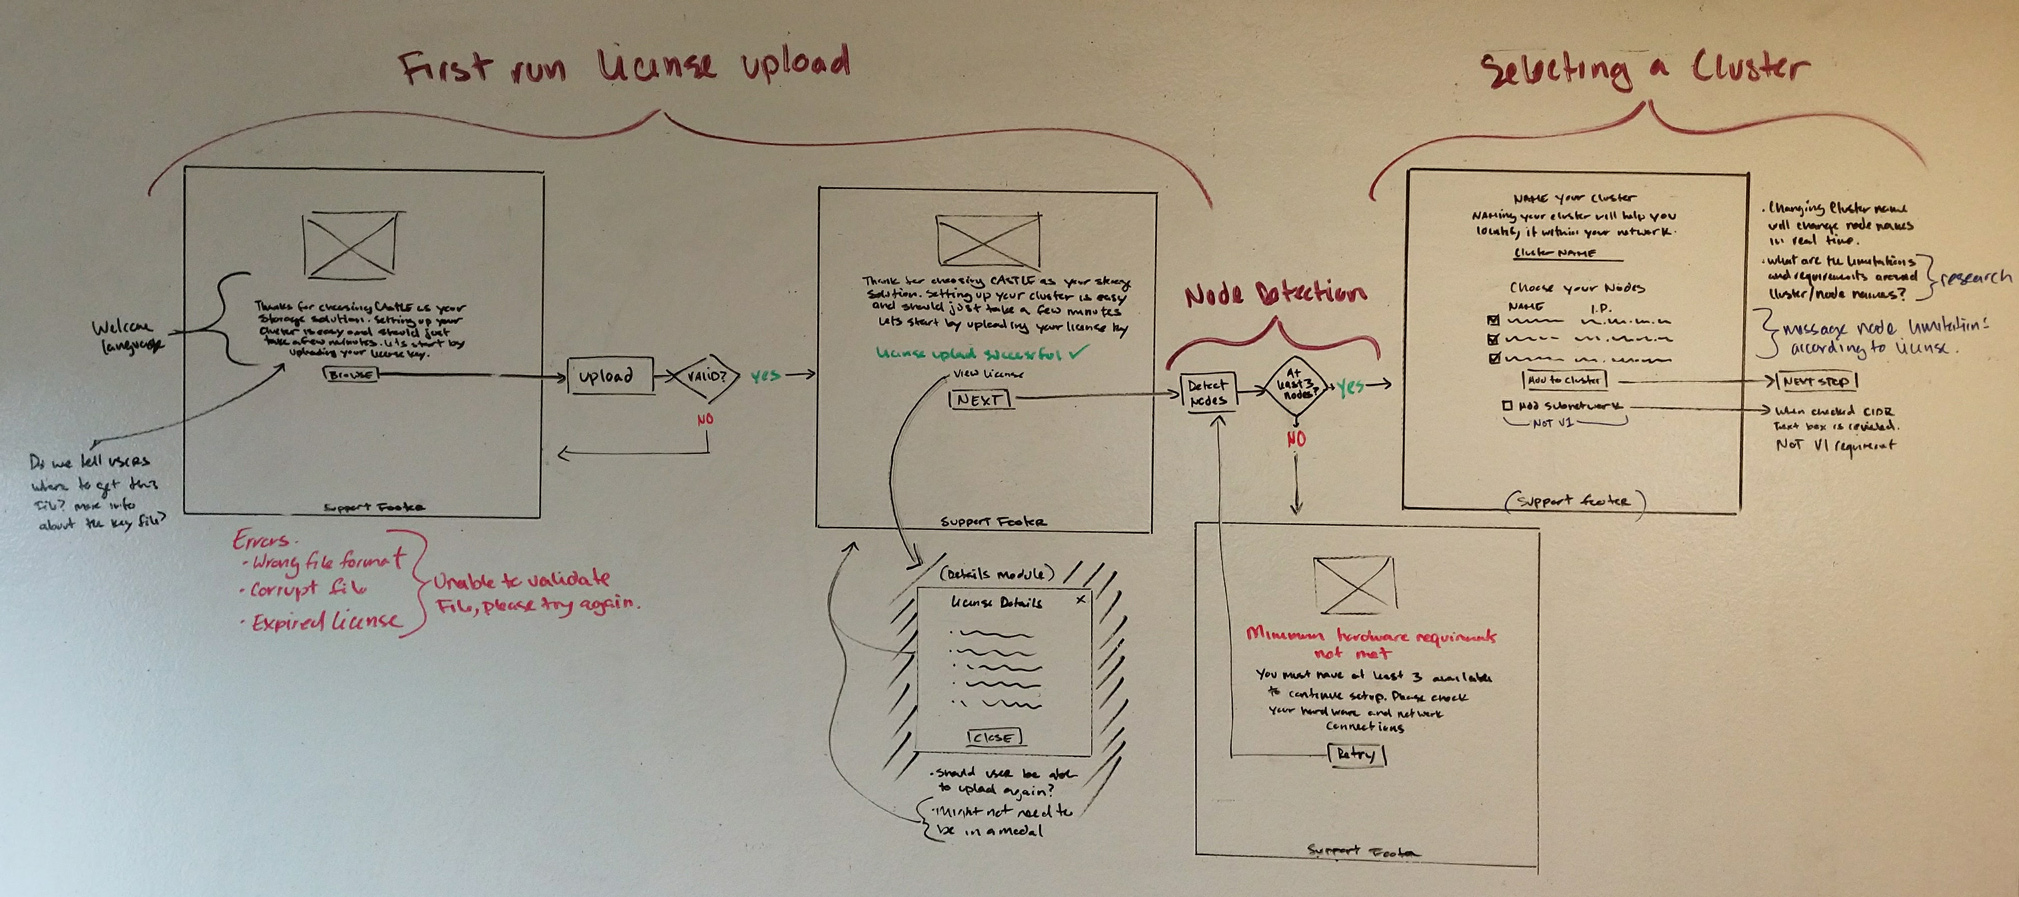 First run License upload
Selecting a Cluster
Node Detection
Welcome
language
Thanks for choosing CASTLE as your
Storage solution. Setting up your
cluster is easy and should just
take a few minutes. Lets start by
uploading your license key.
BROWSE
Support Footer
Do we tell users
where to get this
file? more info
about the key file?
Errors.
· Wrong file format
· Corrupt file
· Expired License
Unable to validate
File, please try again.
upload
VALID?
yes
NO
Thank for choosing CASTLE as your storag
solution. Setting up your cluster is easy
and should just take a few minutes
Lets start by uploading your license key
License upload successful ✓
view License
NEXT
Support Footer
(Details module)
License Details
x
CLOSE
· Should user be able
to upload again?
· Might not need to
be in a modal
Detect
Nodes
At
least 3
nodes?
yes
NO
Minimum hardware requirments
not met
You must have at least 3 available
to continue setup. Please check
your hardware and network
connections
Retry
Support Footer
NAME your Cluster
NAMing your cluster will help you
locate, it within your network.
Cluster NAME
Choose your Nodes
NAME I.P.
Add to Cluster
Add subnetwork
NOT V1
(Support footer)
· Changing Cluster name
will change node names
in real time.
· what are the limitations
and requirements around
cluster/node names?
research
message node limitations
according to license.
NEXT STEP
When checked CIDR
text box is revealed.
NOT V1 requirment